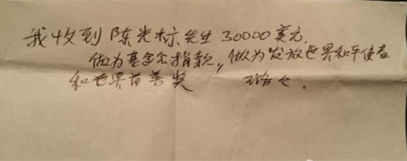 我收到陈光标先生30000美元.
做为基金会捐款,做为发放世界和平使者
和世界首善奖